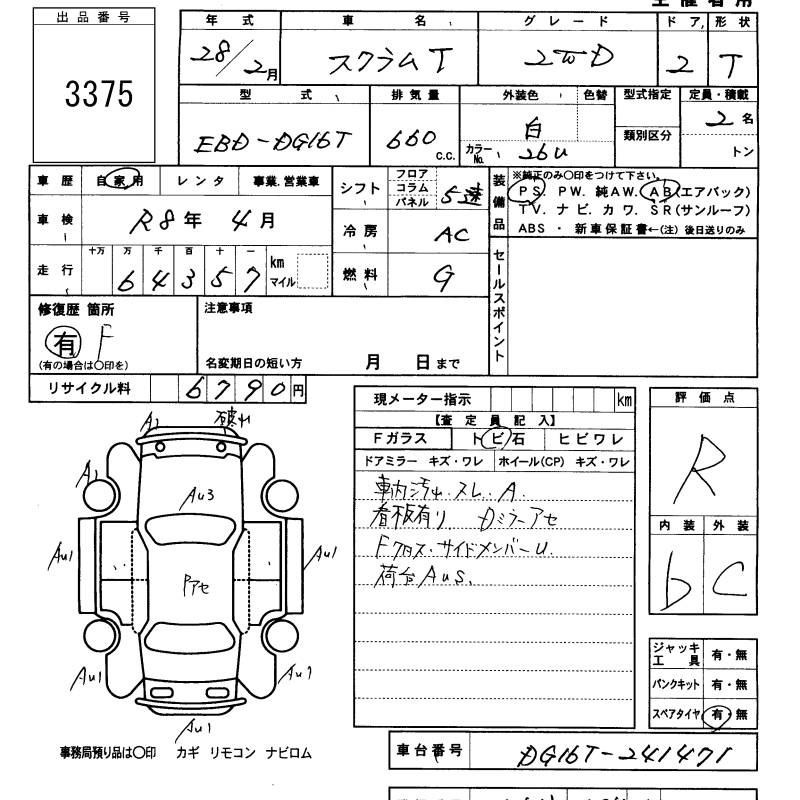 主催者用
出品番号
3375
年式 車名 グレード ドア 形状
28/2月 スクラムT 2WD 2 T
型式 排気量 外装色 色替 型式指定 定員・積載
EBD-DG16T 660 C.C. 白 類別区分 2名
カラーNo. 26U トン
車歴 自家用 レンタ 事業.営業車 シフト フロア コラム パネル 5速
装備品 ※純正のみ〇印をつけて下さい。
PS. PW. 純AW. AB(エアバック)
TV. ナビ. カワ. SR(サンルーフ)
ABS ・ 新車保証書←(注) 後日送りのみ
車検 R8年 4月 冷房 AC
走行 十万 万 千 百 十 一 km マイル 燃料 G
64357
セールスポイント
修復歴 箇所 注意事項
有 F
(有の場合は〇印を) 名変期日の短い方 月 日まで
リサイクル料 6790円
現メーター指示 km
【査定員記入】
Fガラス トビ石 ヒビワレ
ドアミラー キズ・ワレ ホイール(CP) キズ・ワレ
車内汚れ.スレ.A.
看板有り Dミラーアセ
Fクロス・サイドメンバーU.
荷台AuS.
評価点
R
内装 外装
b C
A1 破れ
A1
Au3
Au1 Au1
Pアセ
Au1 Au1
Au1
ジャッキ工具 有・無
パンクキット 有・無
スペアタイヤ 有・無
事務局預り品は〇印 カギ リモコン ナビロム
車台番号 DG16T-241471